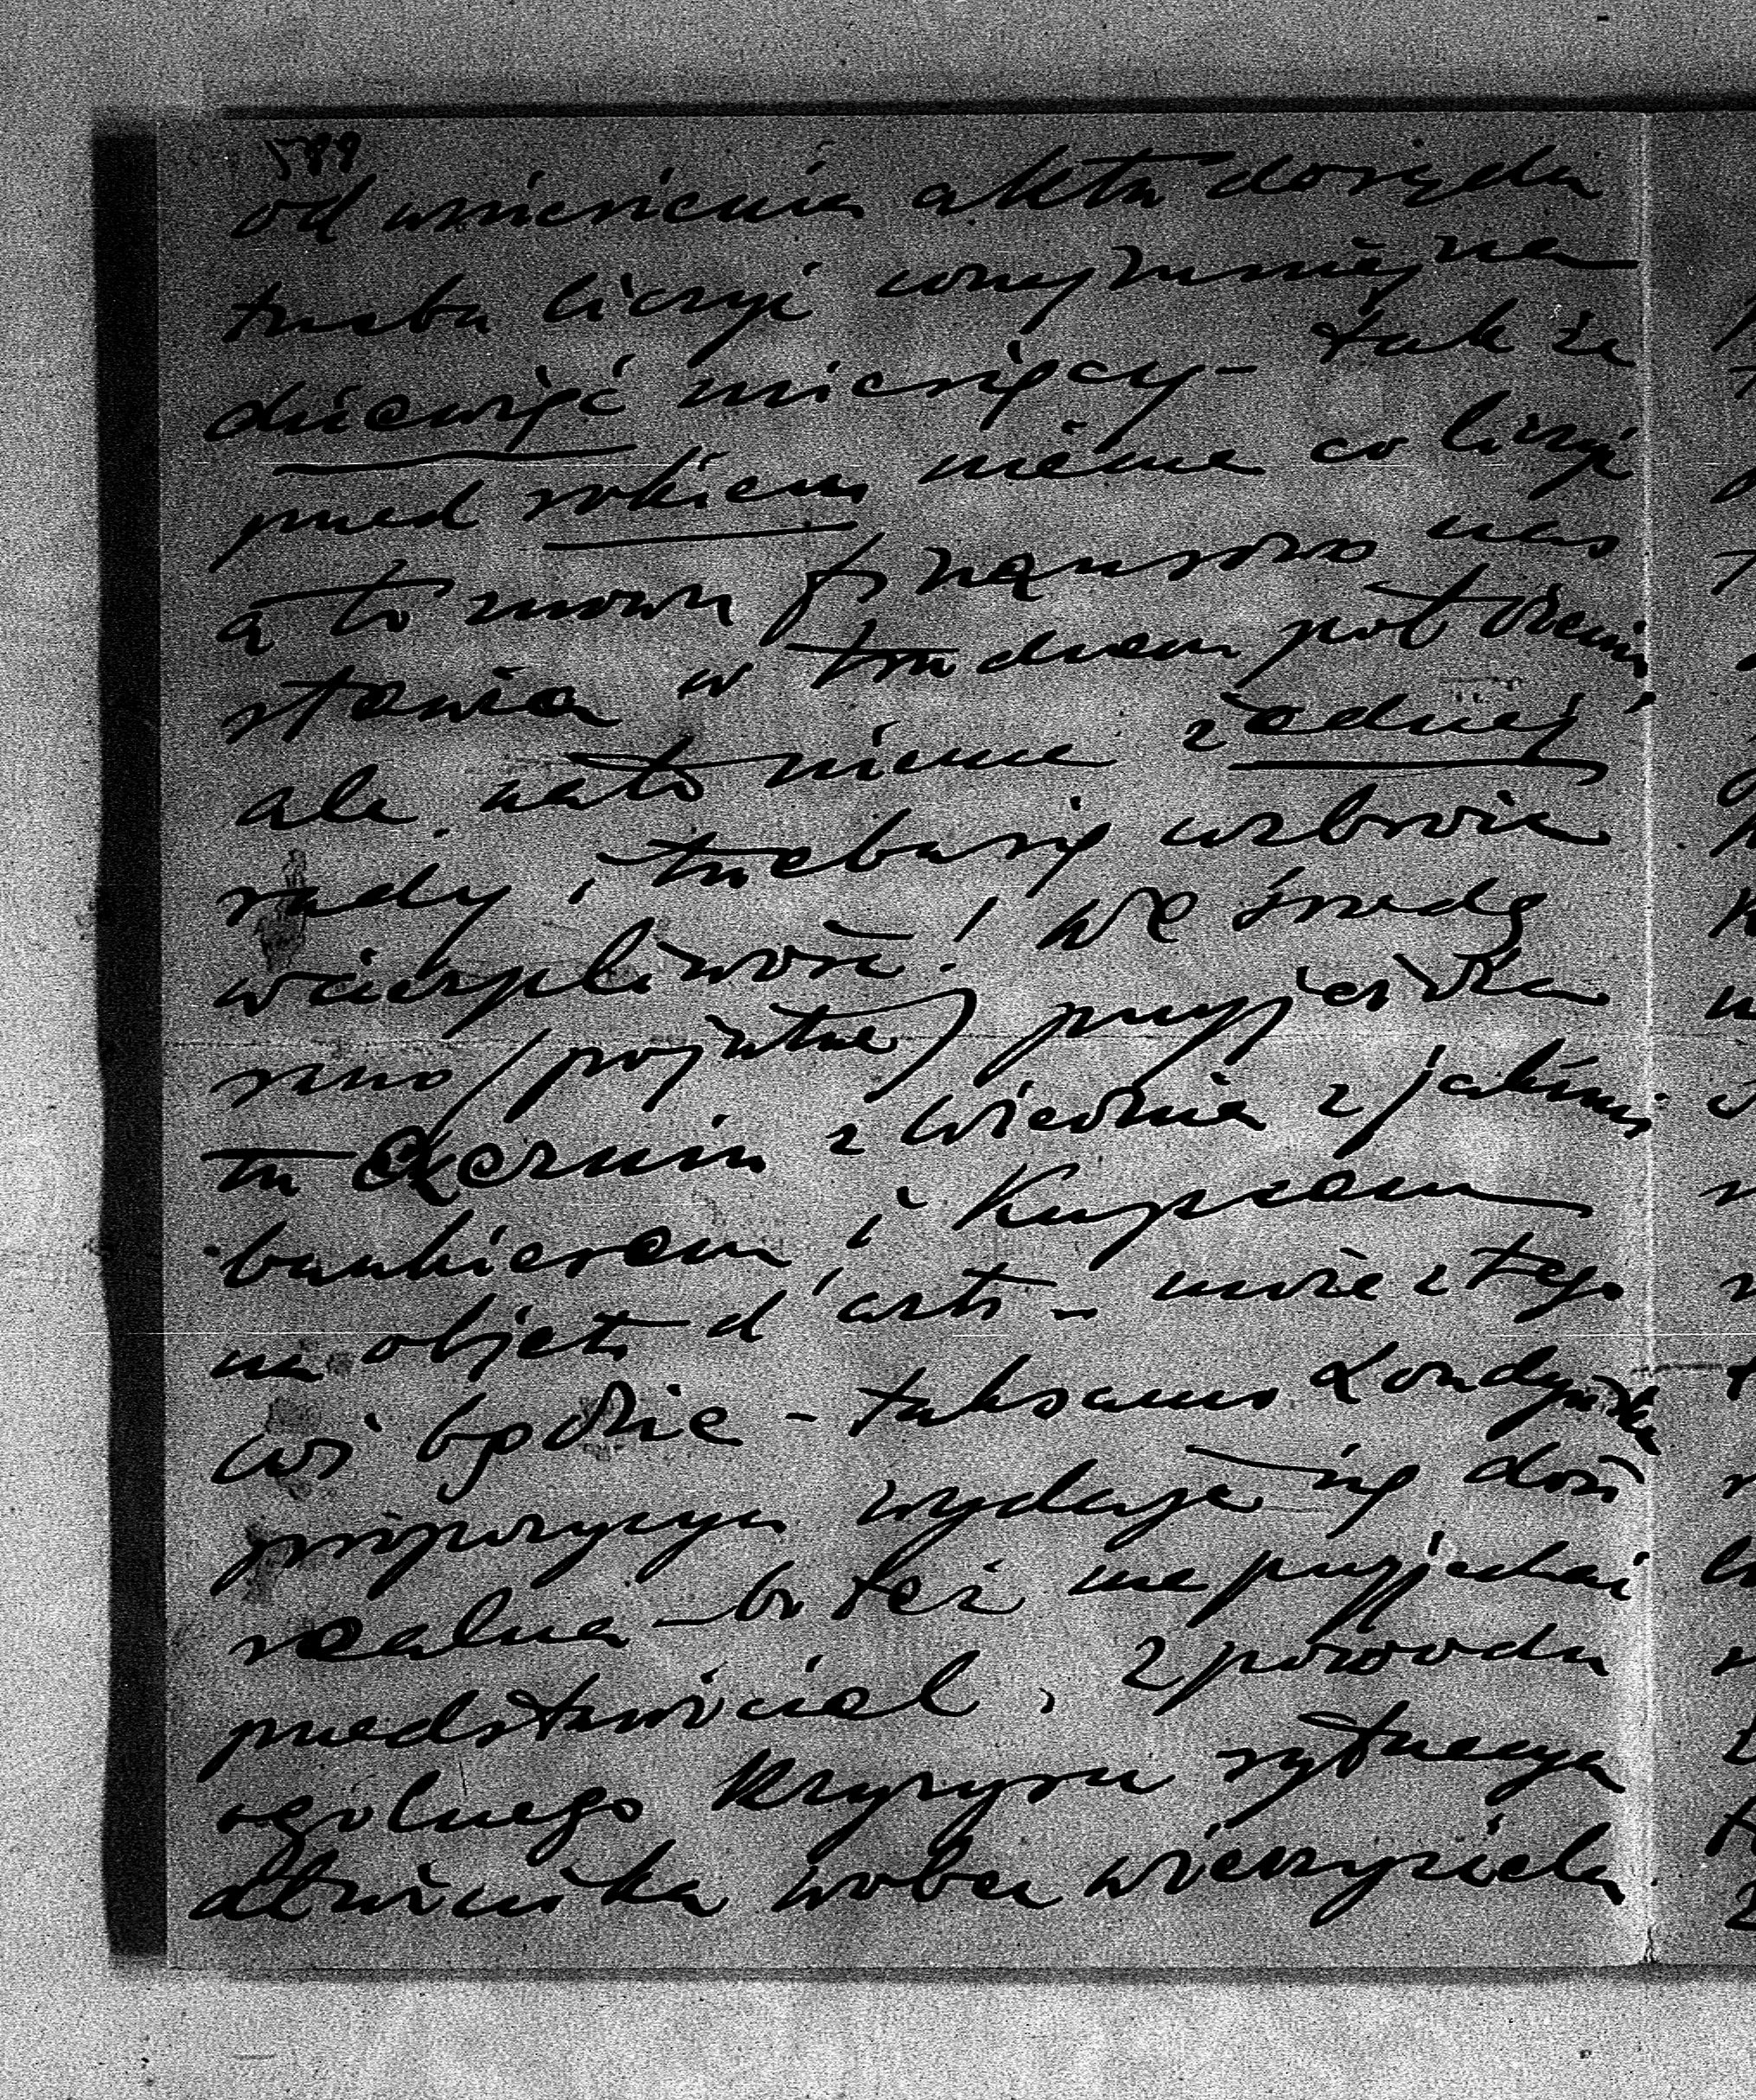 589
od wniesienia aktu do sądu
trzeba liczyć conajmniej na
dziewięć miesięcy – tak że
przed rokiem niéma co liczyć
a to znowu finansowo nas
stawia w trudnem położeniu,
ale na to niema żadnej
rady, i trzeba się uzbroić
w cierpliwość! We środę
rano (pojutrze) przyjeżdża
tu Czernin z Wiednia z jakimś
bankierem i kupcem
na objets d'arts – może z tego
coś będzie – tak samo Londyńska
propozycya wydaje się dość
realna – bo też ma przyjechać
przedstawiciel, z powodu
ogólnego kryzysu sytuacya
dłużnika wobec wierzyciela